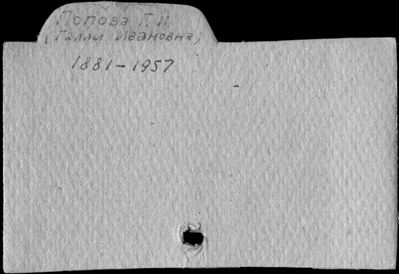 Попова Г.И.
(Галли Ивановна)
1881-1957